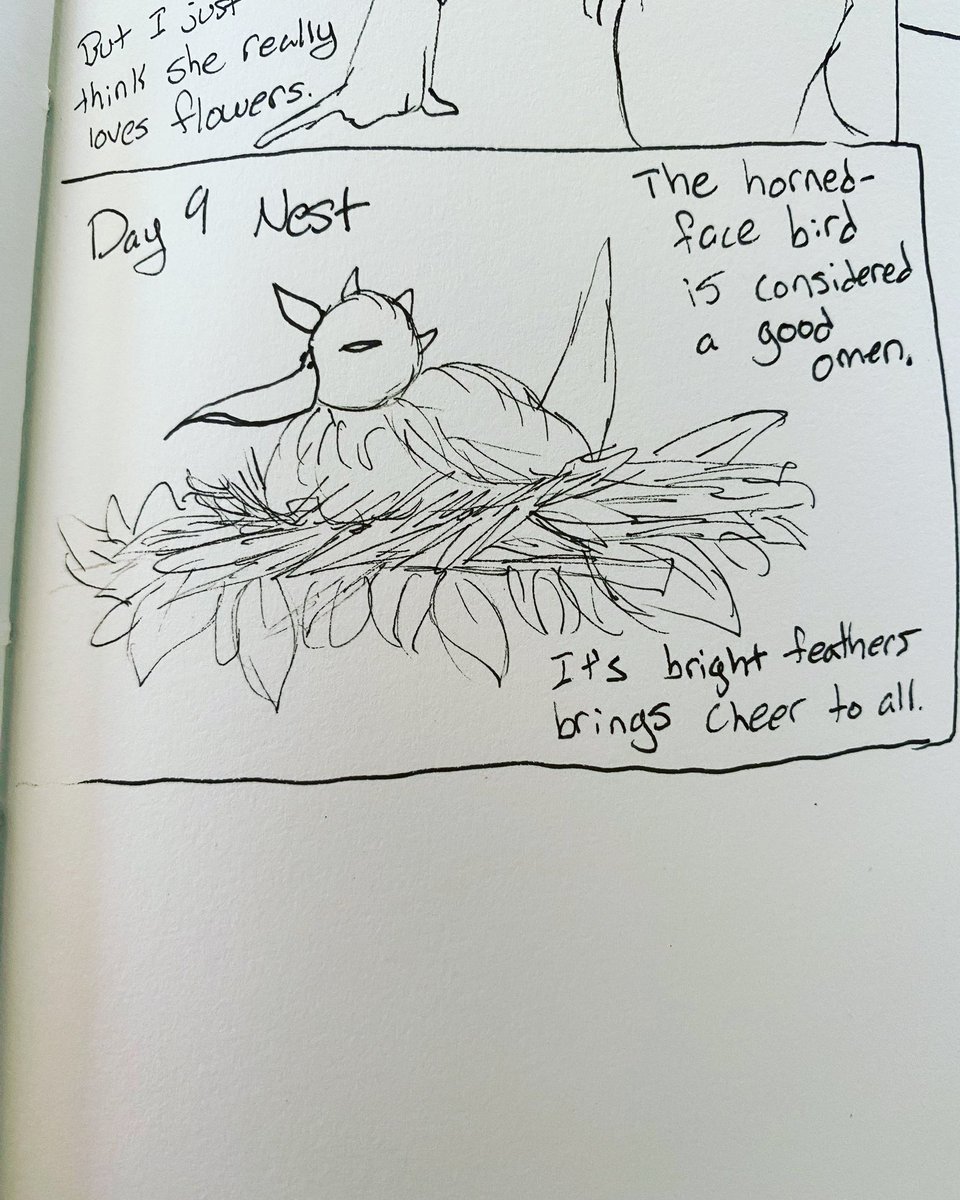 But I just
think she really
loves flowers.
Day 9 Nest
The horned-
face bird
is considered
a good
omen.
It's bright feathers
brings cheer to all.